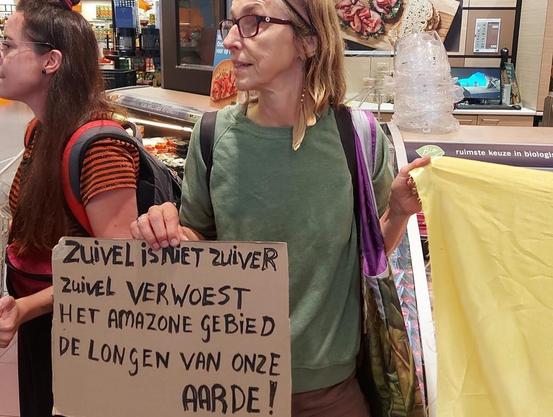 ZUIVEL iS NiET ZUIVER
ZUiVEL VERWOEST
HET AMAZONE GEBiED
DE LONGEN VAN ONZE
AARDE!
ruimste keuze in biologis